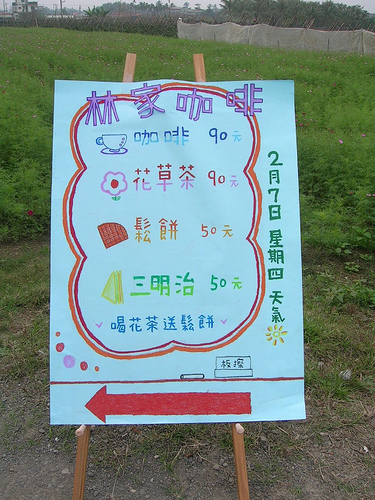 林家咖啡
咖啡 90元
花草茶 90元
鬆餅 50元
三明治 50元
喝花茶送鬆餅
2月7日 星期四 天氣
板擦